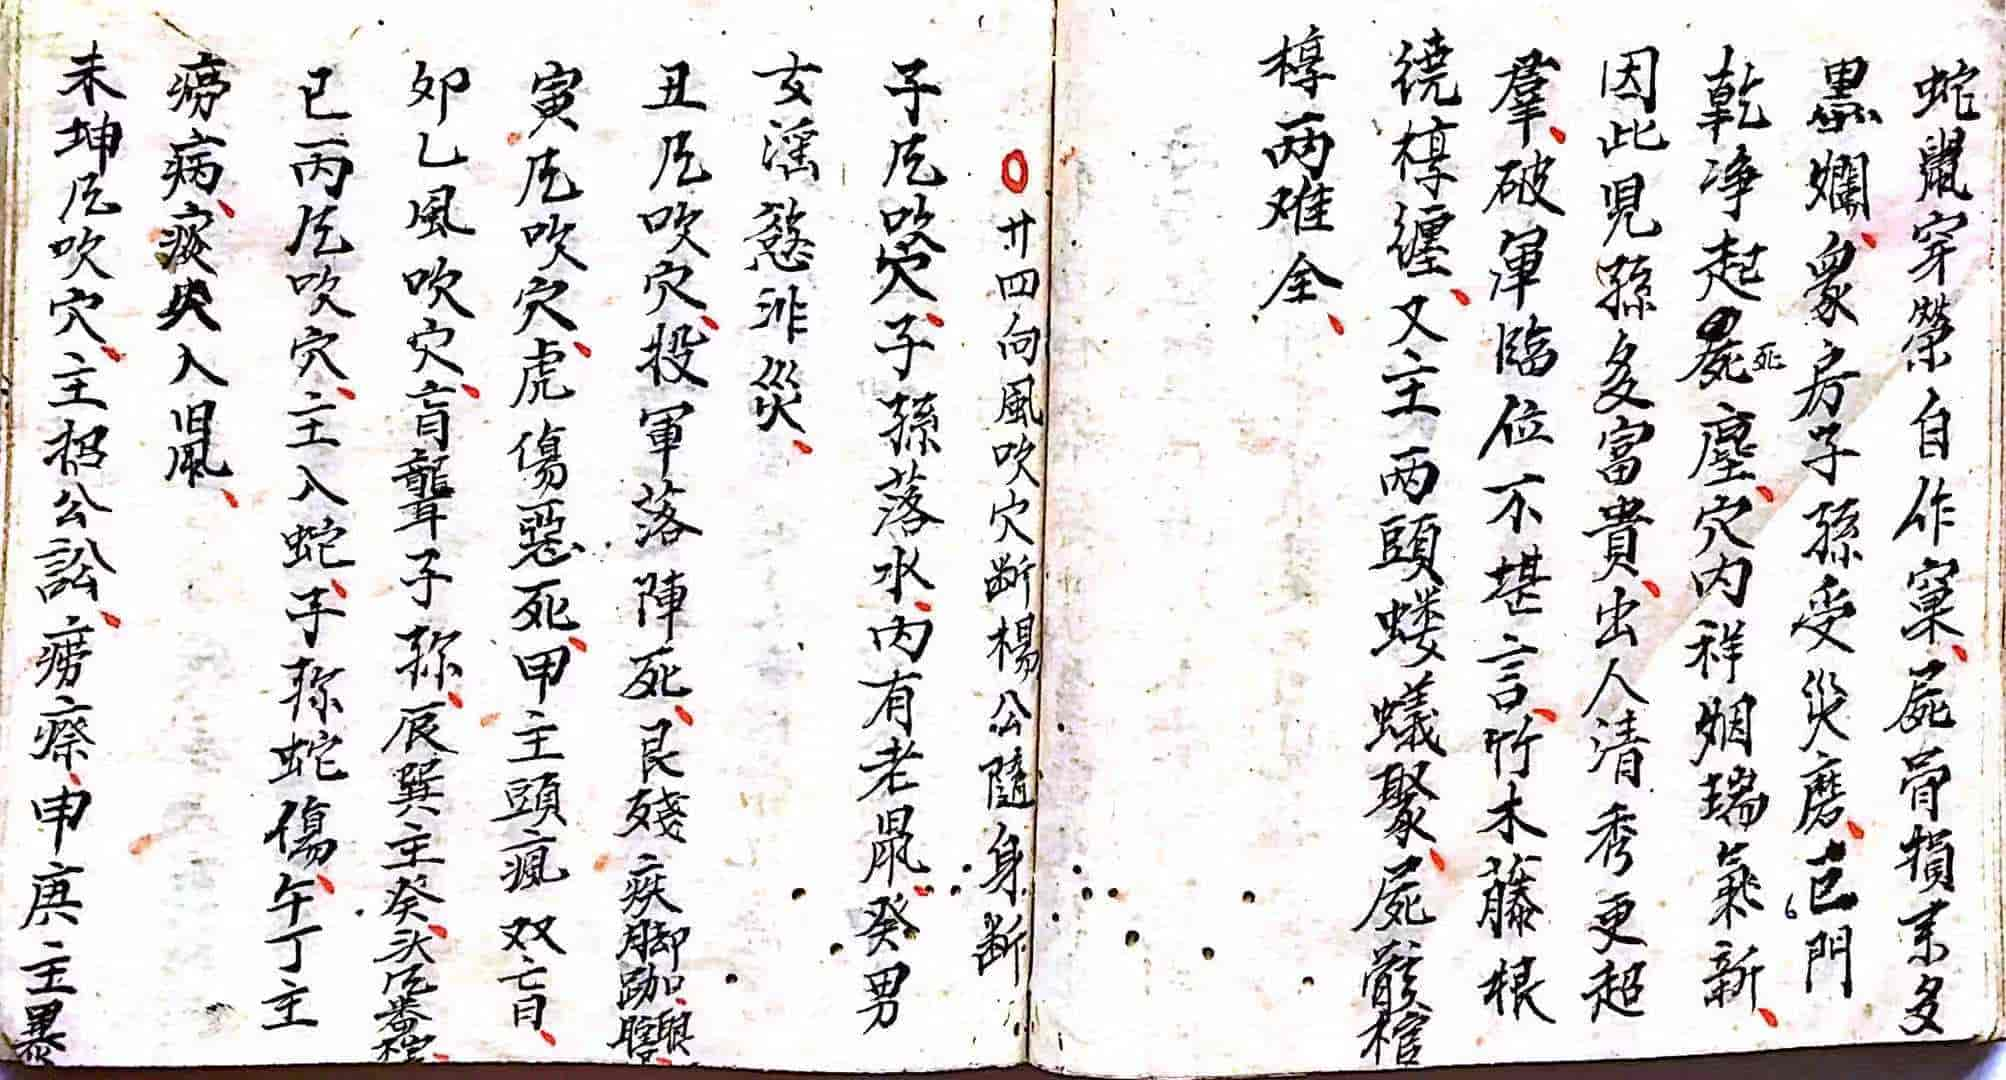 蛇鼠穿塋自作窠屍骨損来多
黑爛衆房子孫受災磨巨門
乾净起屍死塵穴内祥烟瑞氣新
因此児孫多富貴出人清秀更超
羣破軍臨位不堪言竹木藤根
繞槨纏又主两頭蝼蟻聚屍骸棺
槨两难全
廿四向风吹穴断楊公随身断
子凨吹穴子孫落水内有老鼠癸男
女滛慾非災
丑凨吹穴投軍落陣死艮殘疾脚跏
寅凨吹穴虎傷惡死甲主頭瘋双盲
夘乙風吹穴盲聾子孫辰巽主癸凨
巳丙凨吹穴主入蛇子孫蛇傷午丁主
痨病入
未坤凨吹穴主招公訟痨瘵申庚主